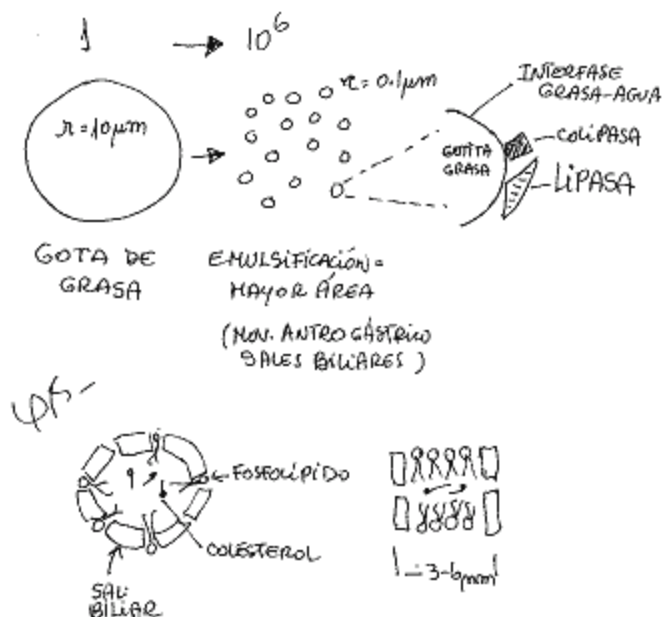 1 → 10⁶
r = 10 μm
r = 0.1 μm
INTERFASE
GRASA-AGUA
COLIPASA
GOTITA
GRASA
LIPASA
GOTA DE
GRASA
EMULSIFICACIÓN =
MAYOR ÁREA
(MOV. ANTRO GÁSTRICO
SALES BILIARES)
FOSFOLÍPIDO
COLESTEROL
SAL
BILIAR